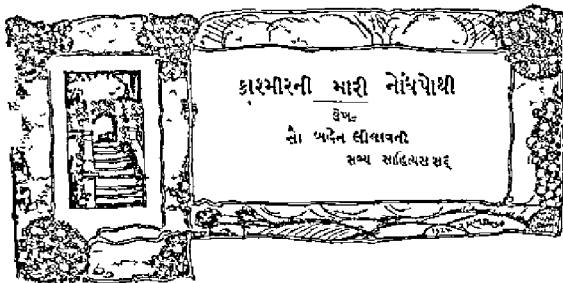 કાશ્મીરની મારી નોંધપોથી
લેખ૦
સૌ બહેન લીલાવતી
સભ્ય સાહિત્યસંસદ્